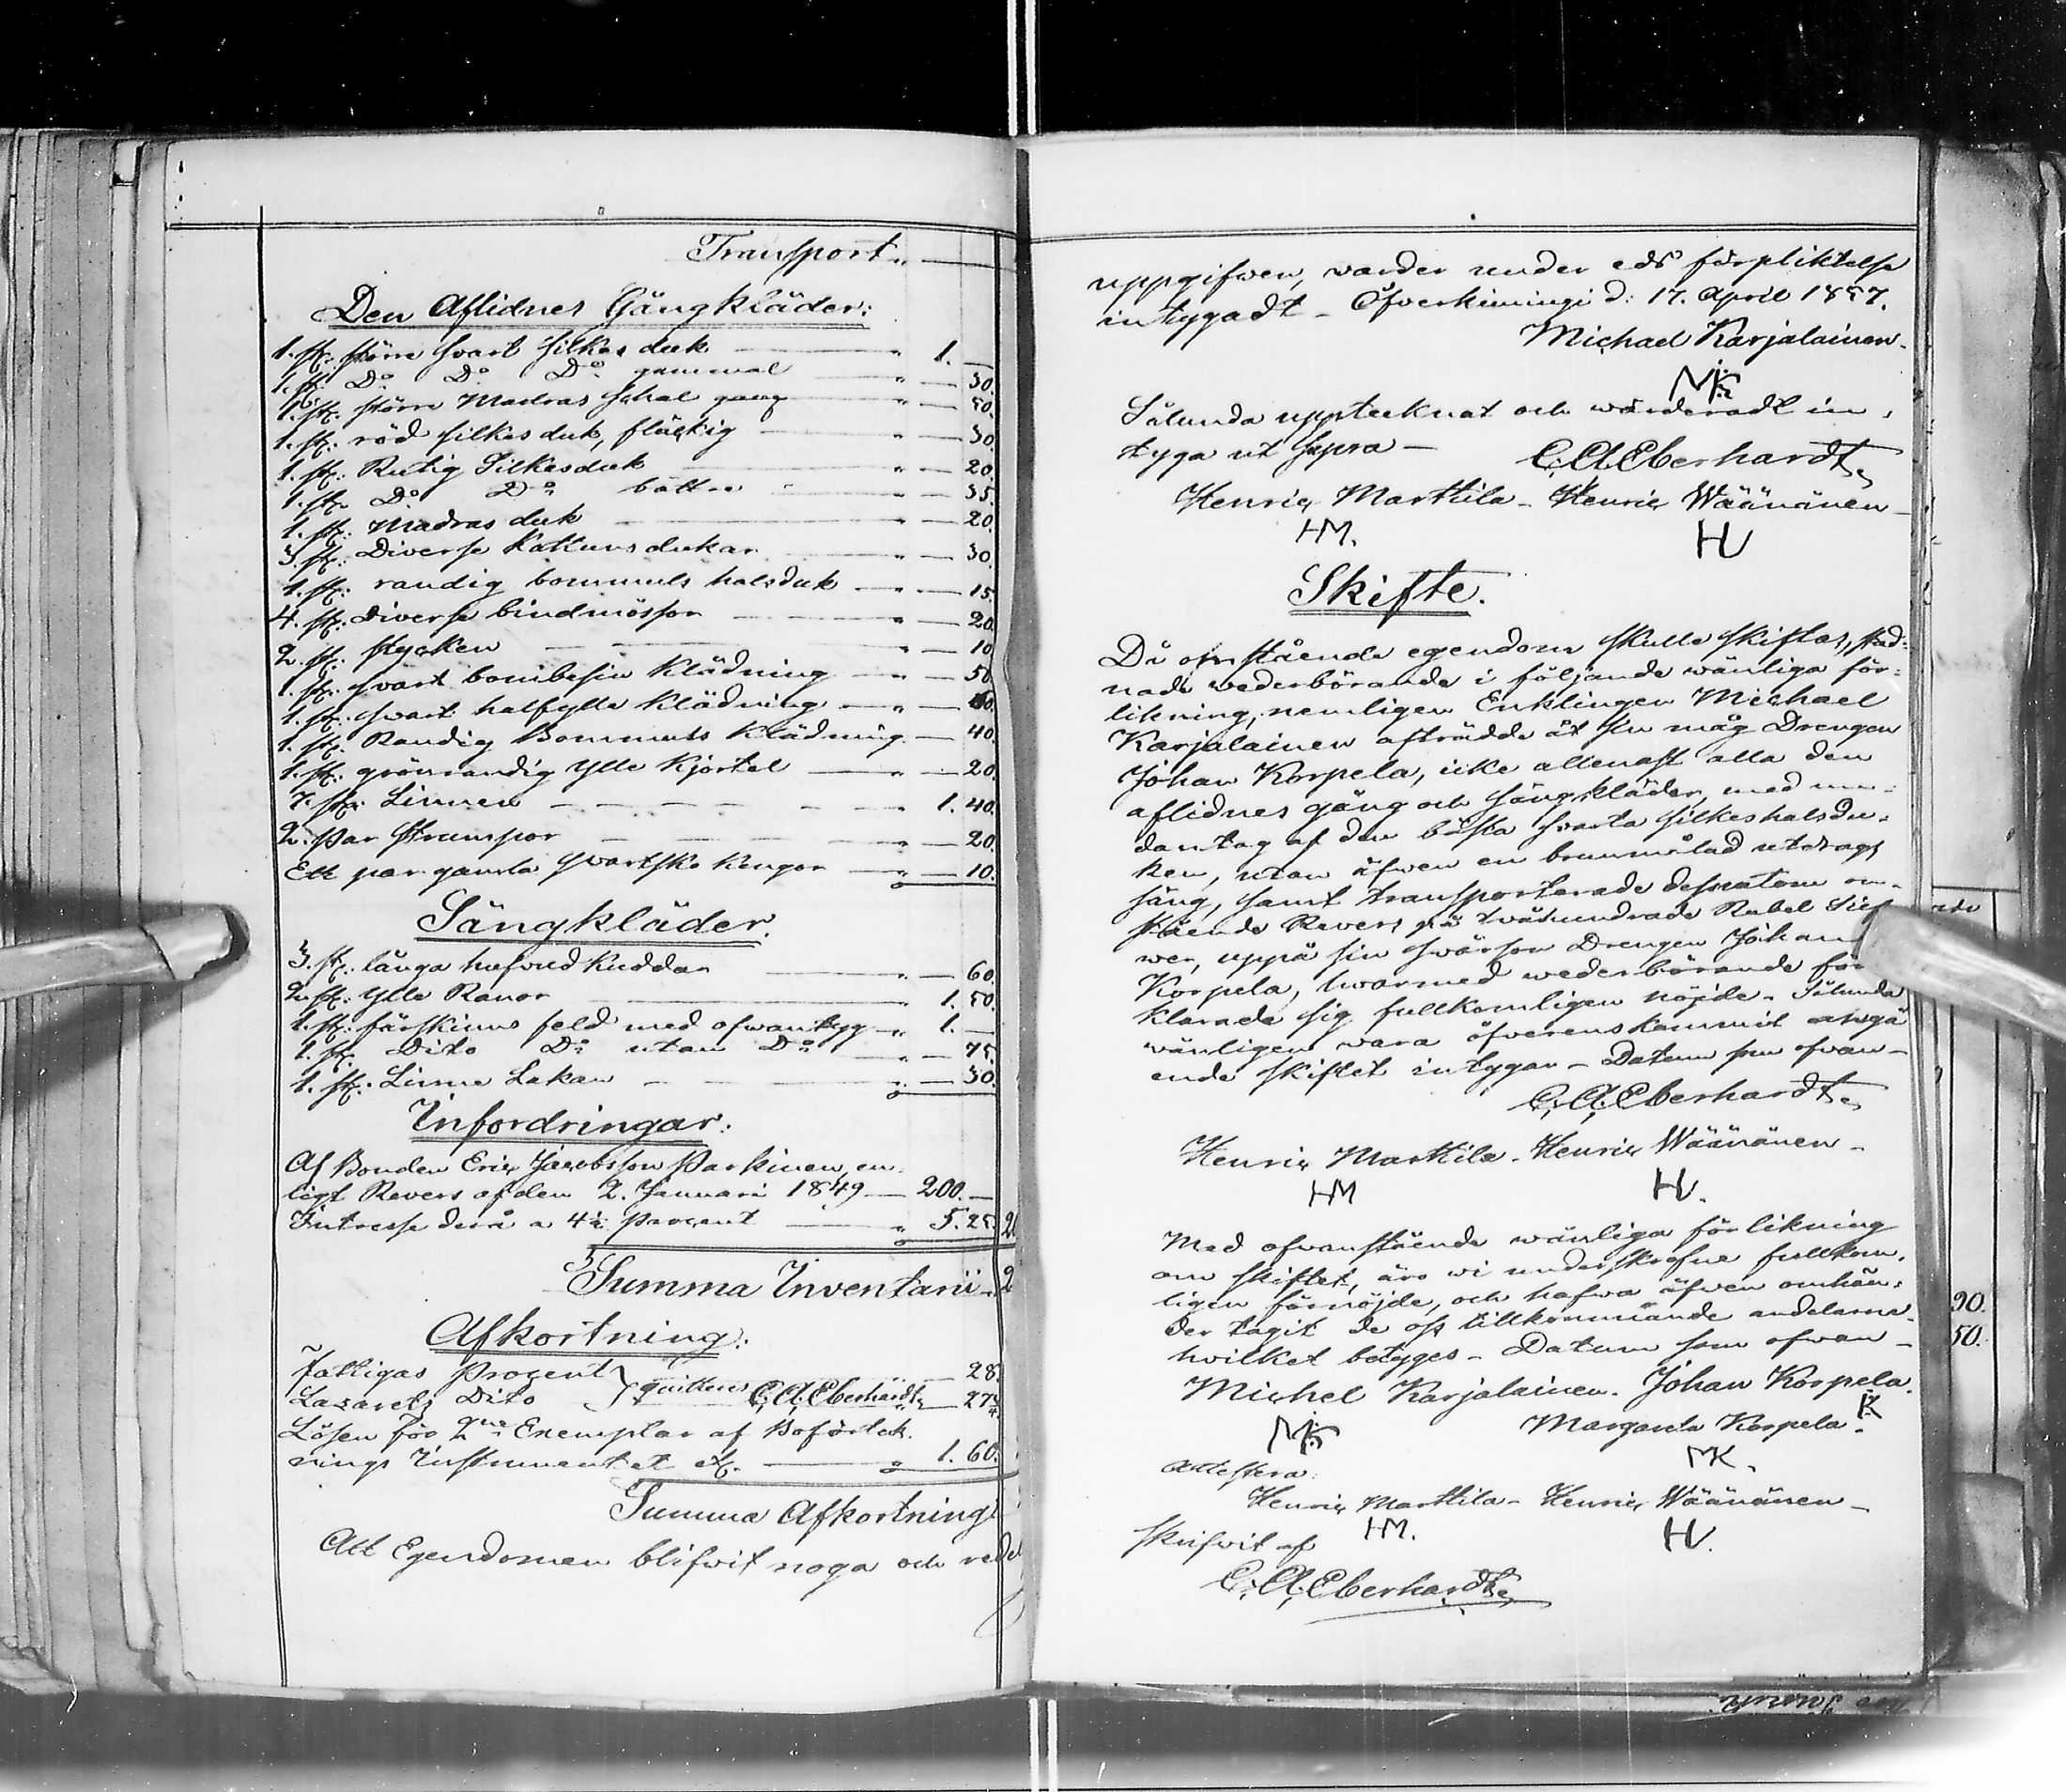 Transport „ —
Den Aflidnes Gångkläder:
1. st: större svart silkes duk — „ 1. —
1. st: Do Do Do gammal — „ — 30.
1. st: större Madras schal — „ — 50.
1. st: röd silkes duk, fläckig — „ — 30.
1. st: Rutig Silkesduk — „ — 20.
1. st: Do Do bättre — „ — 35.
1. st: Madras duk — „ — 20.
3. st: Diverse Kattuns dukar — „ — 30.
1. st: randig bommuls halsduk — „ — 15.
4. st: Diverse bindmössor — „ — 20.
2. st: stycken — „ — 10
1. st: svart bombesin Klädning — „ — 50
1. st: svart halfylle Klädning — „ —
1. st: Randig Bommuls Klädning — 40.
1. st: grönrandig Ylle Kjortel — „ — 20.
7. st: Linnen — 1. 40.
2. Par strumpor — „ — 20.
Ett par gamla svartsko Kengor — „ — 10.
Sängkläder.
3. st: långa hufvud Kuddar — „ — 60.
2. st: Ylle Ranor — „ 1. 50.
1. st: fårskinns feld med ofwantyg — „ 1. —
1. st: Dito Do utan Do — „ — 75.
1. st: Linne Lakan — „ — 30.
Infordringar:
Af Bonden Eric Jacobsson Parkinen, en-
ligt Revers af den 2. Januari 1849 — 200. —
Intresse derå a 4½ procent — „ 5. 25. 2
Summa Inventarii „ 2
Afkortning:
Fattigas Procent } — 28.
Lazarets Dito } quitteras C. A. Eberhardt — 27¾
Lösen för 2ne Exemplar af Boförtek-
nings Instrumentet — „ 1. 60.
Summa Afkortning
Att Egendomen blifwit noga och rede
uppgifwen, warder under eds förpliktelse
intygadt — Öfverkimingi d: 17. April 1857.
Michael Karjalainen.
MK
Sålunda upptecknat och wärderadt in-
tyga ut Supra — C. A. Eberhardt
Henric Marttila — Henric Wäänänen —
HM. HW
Skifte.
Då ofvanstående egendom skulle skiftas, stad-
nade wederbörande i följande wänliga för-
likning, nemligen Enklingen Michael
Karjalainen afträdde åt sin måg Drengen
Johan Korpela, icke allenast alla den
aflidnes gång och sängkläder, med un-
dantag af den bästa svarta silkeshalsdu-
ken, utan äfwen en brunmålad utdrags
säng, samt transporterade dessutom om-
stående Revers på twåhundrade Rubel Silf
wer, uppå sin swärson Drengen Johan
Korpela, hwarmed wederbörande för
klarade sig fullkomligen nöjde. Sålunda
wänligen wara öfverenskommit angå
ende skiftet intygar — Datum som ofwan —
C. A. Eberhardt
Henric Marttila — Henric Wäänänen —
HM HW.
Med ofwanstående wänliga förlikning
om skiftet, äro wi underskrefne fullkom-
ligen förnöjde, och hafwa äfwen omhän-
der tagit de oss tillkommande andelarne
hvilket betyges — Datum som ofwan —
Michel Karjalainen. Johan Korpela.
MK K
Margareta Korpela.
MK.
Attestera:
Henric Marttila — Henric Wäänänen —
HM. HW.
Skrifvit af
C. A. Eberhardt
90.
50.